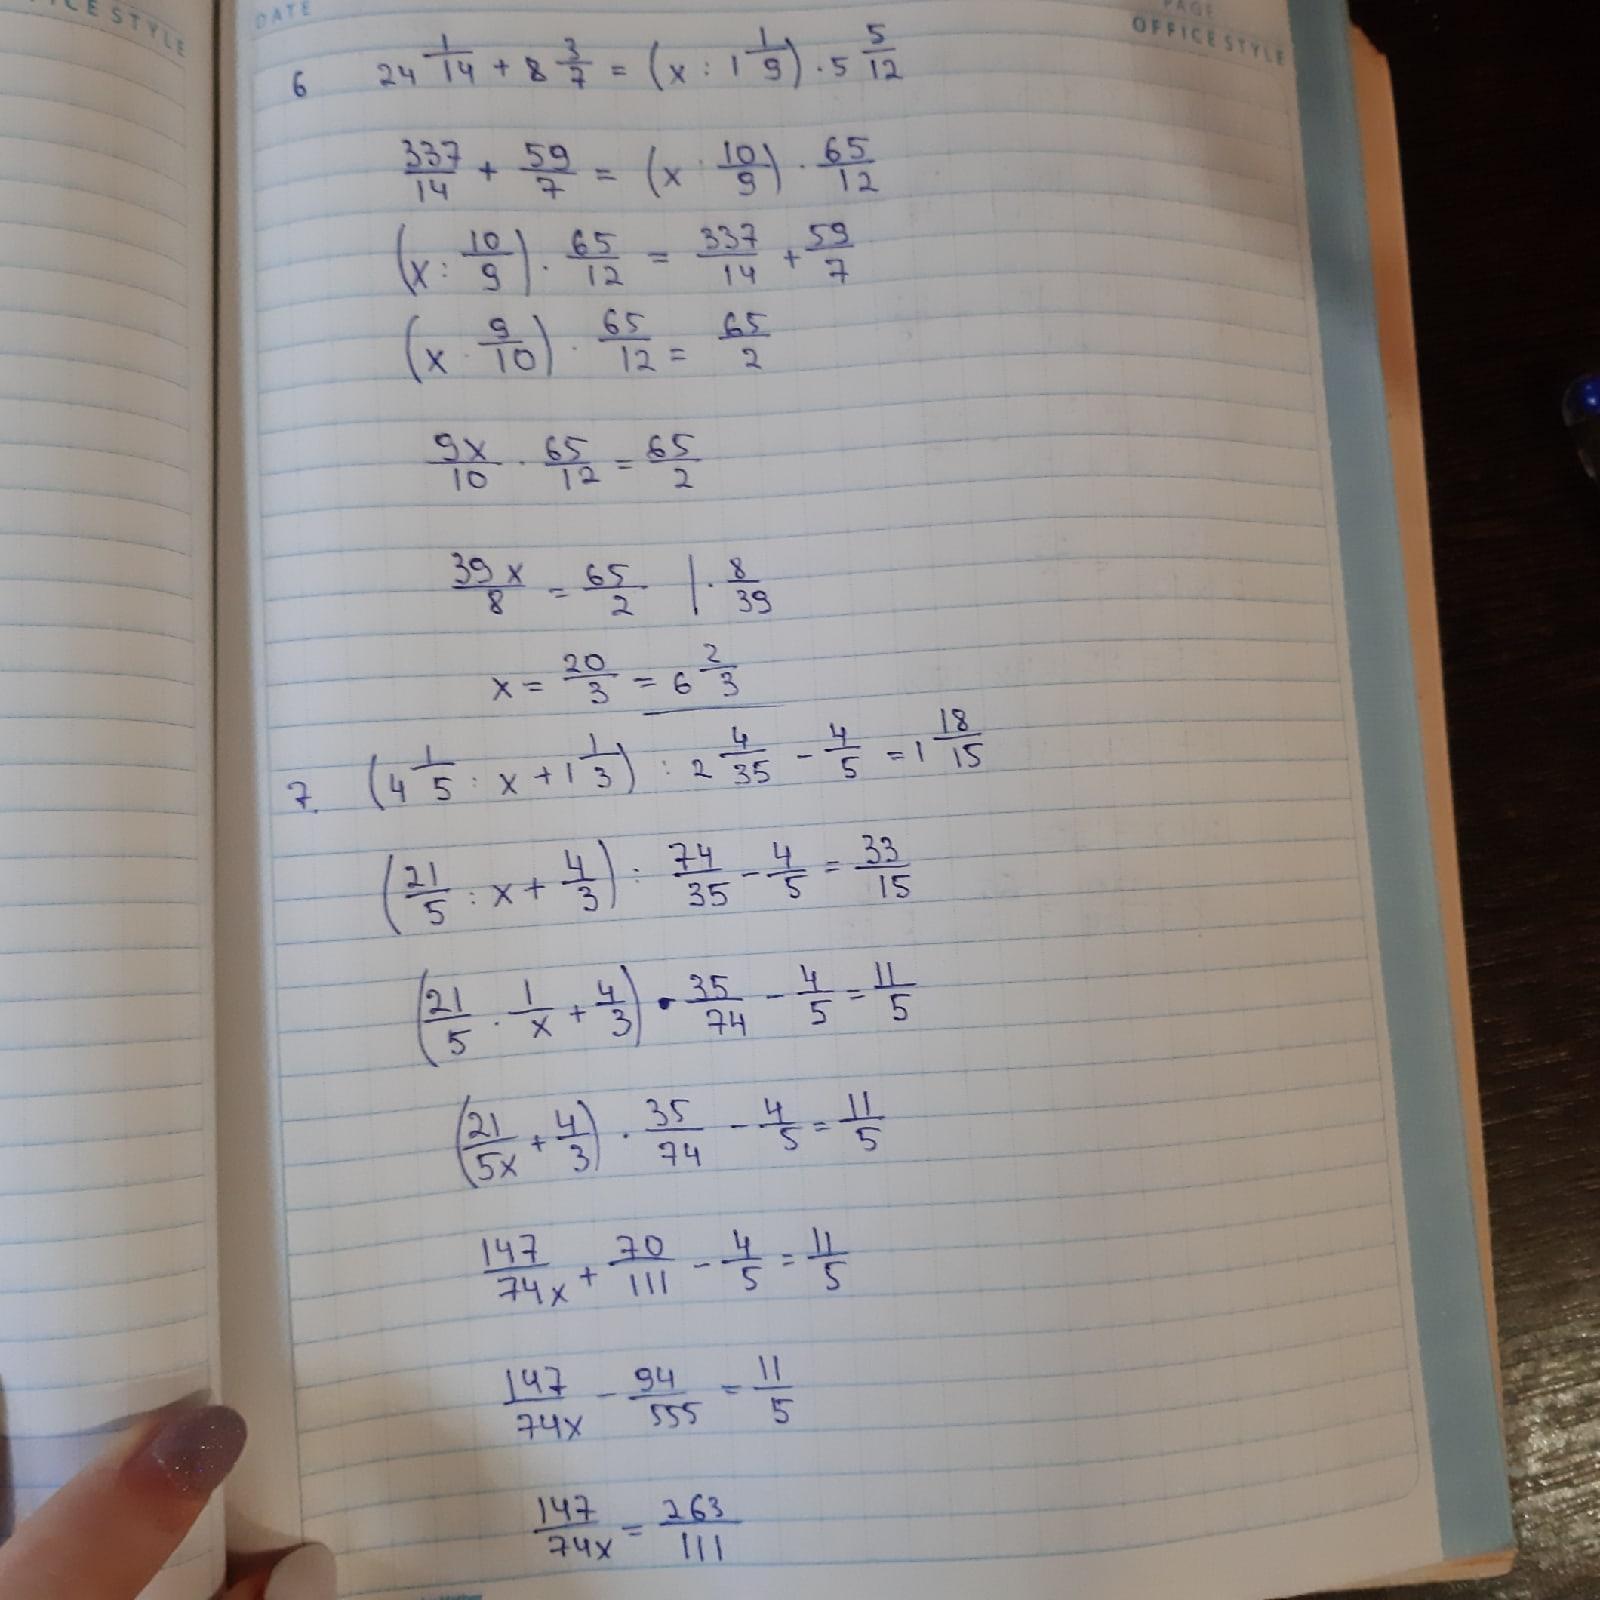 CE STYLE
DATE
PAGE
OFFICE STYLE
6 24 1/14 + 8 3/7 = (x : 1 1/9) · 5 5/12
337/14 + 59/7 = (x · 10/9) · 65/12
(x : 10/9) · 65/12 = 337/14 + 59/7
(x · 9/10) · 65/12 = 65/2
9x/10 · 65/12 = 65/2
39x/8 = 65/2 | · 8/39
x = 20/3 = 6 2/3
7. (4 1/5 : x + 1 1/3) : 2 4/35 - 4/5 = 1 18/15
(21/5 : x + 4/3) : 74/35 - 4/5 = 33/15
(21/5 · 1/x + 4/3) · 35/74 - 4/5 = 11/5
(21/5x + 4/3) · 35/74 - 4/5 = 11/5
147/74x + 70/111 - 4/5 = 11/5
147/74x - 94/555 = 11/5
147/74x = 263/111